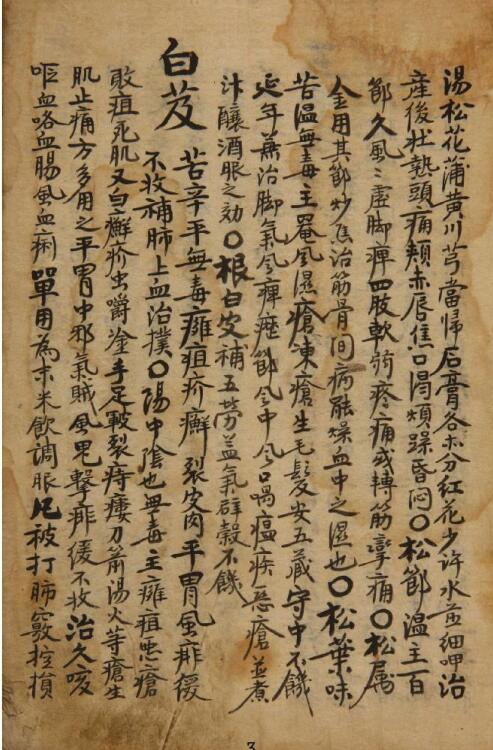 湯松花蒲黄川芎當帰石膏各等分紅花少许水煎細呷治
産後壮熱頭痛頬赤唇焦口渴煩躁昏闷〇松節温主百
節久風〻虚脚痺四肢軟弱疼痛或轉筋攣痛〇松属
金用其節炒焦治筋骨間病能燥血中之濕也〇松葉味
苦温無毒主罨風濕瘡凍瘡生毛髮安五藏守中不饑
延年兼治脚氣風痺歷節風中風口喎瘟疾惡瘡並煮
汁釀酒服之効〇根白皮補五劳益氣辟穀不饑
白芨 苦辛平無毒癰疽疥癬裂皮肉平胃風痱緩
不收補肺止血治撲〇陽中陰也無毒主癰疽惡瘡
敗疽死肌又白癬疥虫嚼塗手足皸裂痔瘻刀箭湯火等瘡生
肌止痛方多用之平胃中邪氣贼風鬼擊痱緩不收治久咳
嘔血咯血腸風血痢單用為末米飲調服凡被打肺竅控損
3